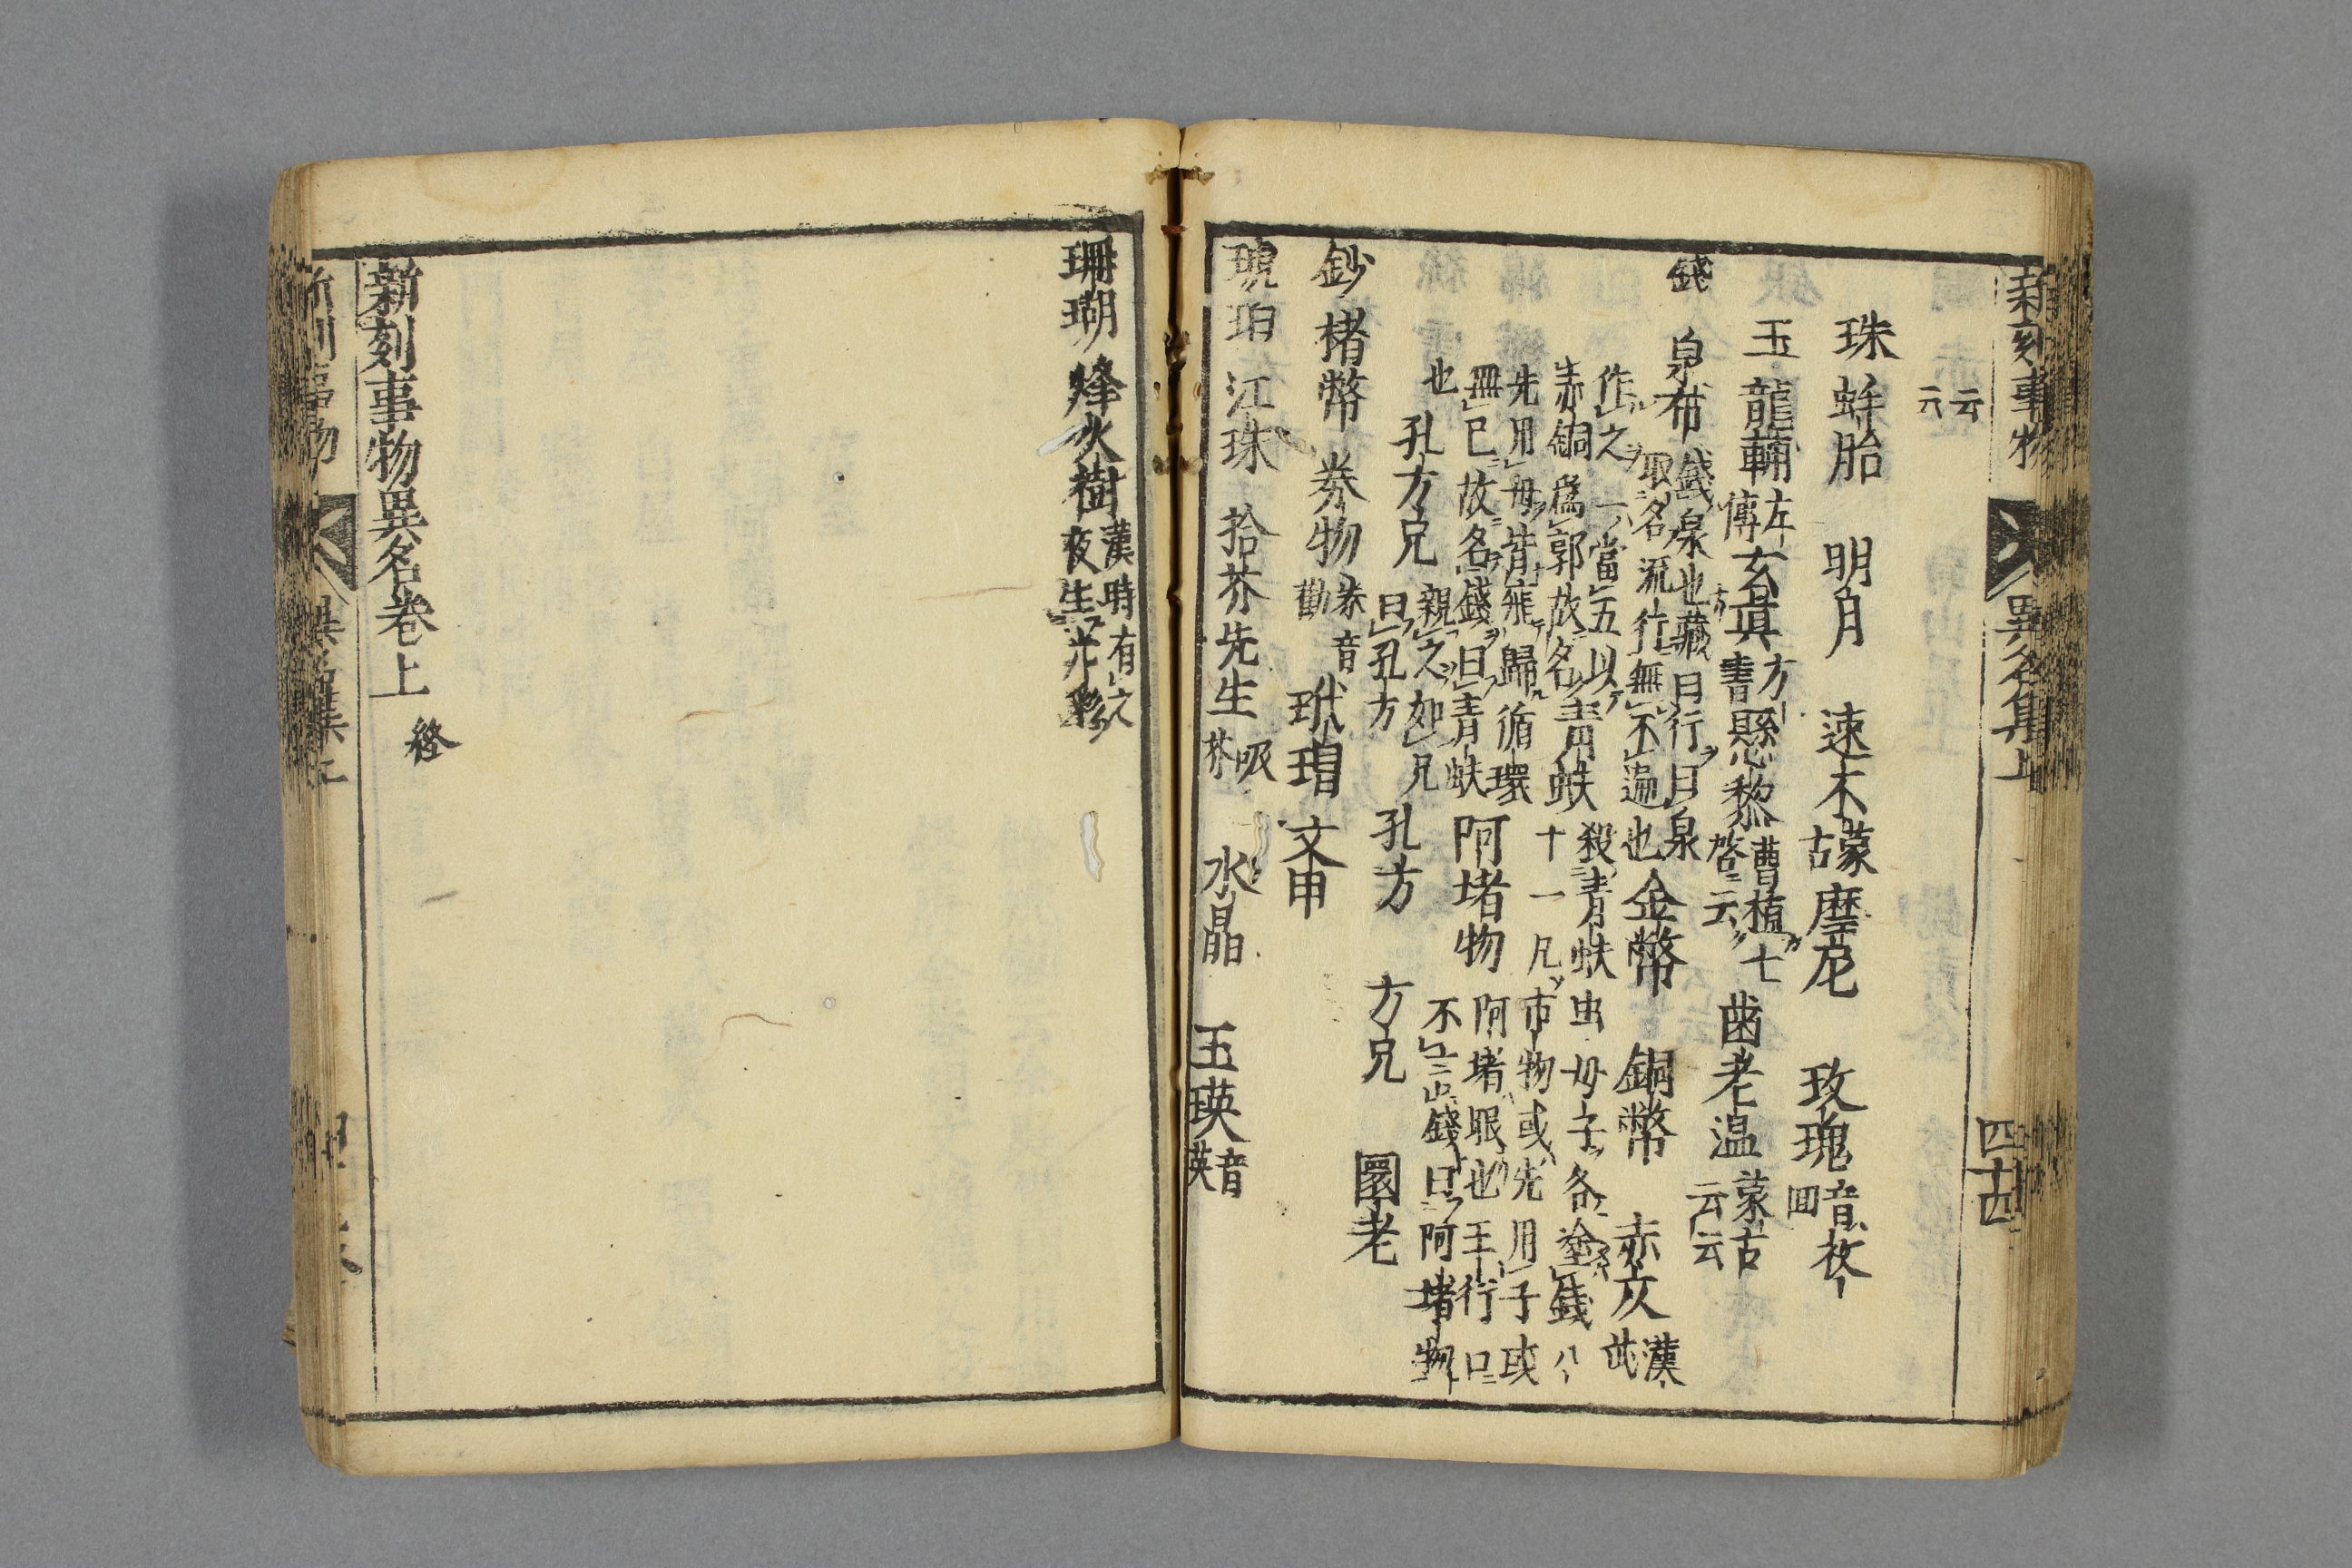 新刻事物
異名集上
四十四
云云
珠 蚌胎 明月 速不 蒙古 摩尼 玫瑰 音枚回
玉 龍輔 左傳 玄眞 方書 懸黎 曹植七啓云 凾老温 蒙古云云
錢 泉布 錢泉也藏曰行曰泉取名流行無不遍也 金幣 銅幣 赤仄 漢武
作之一當五以赤銅爲郭故名 青蚨 殺青蚨虫母子各塗錢八十一凡市物或先用子或
先用母皆飛歸循環無已故名錢曰青蚨 阿堵物 阿堵眼也王行口不言錢曰阿堵物
也 孔方兄 親之如兄曰孔方 孔方 方兄 圜老
鈔 楮幣 券物 券音勸 玳瑁 文甲
琥珀 江珠 拾芥先生 吸芥 水晶 玉瑛 音英
珊瑚 烽火樹 漢時有之夜生光彩
新刻事物異名卷上 終